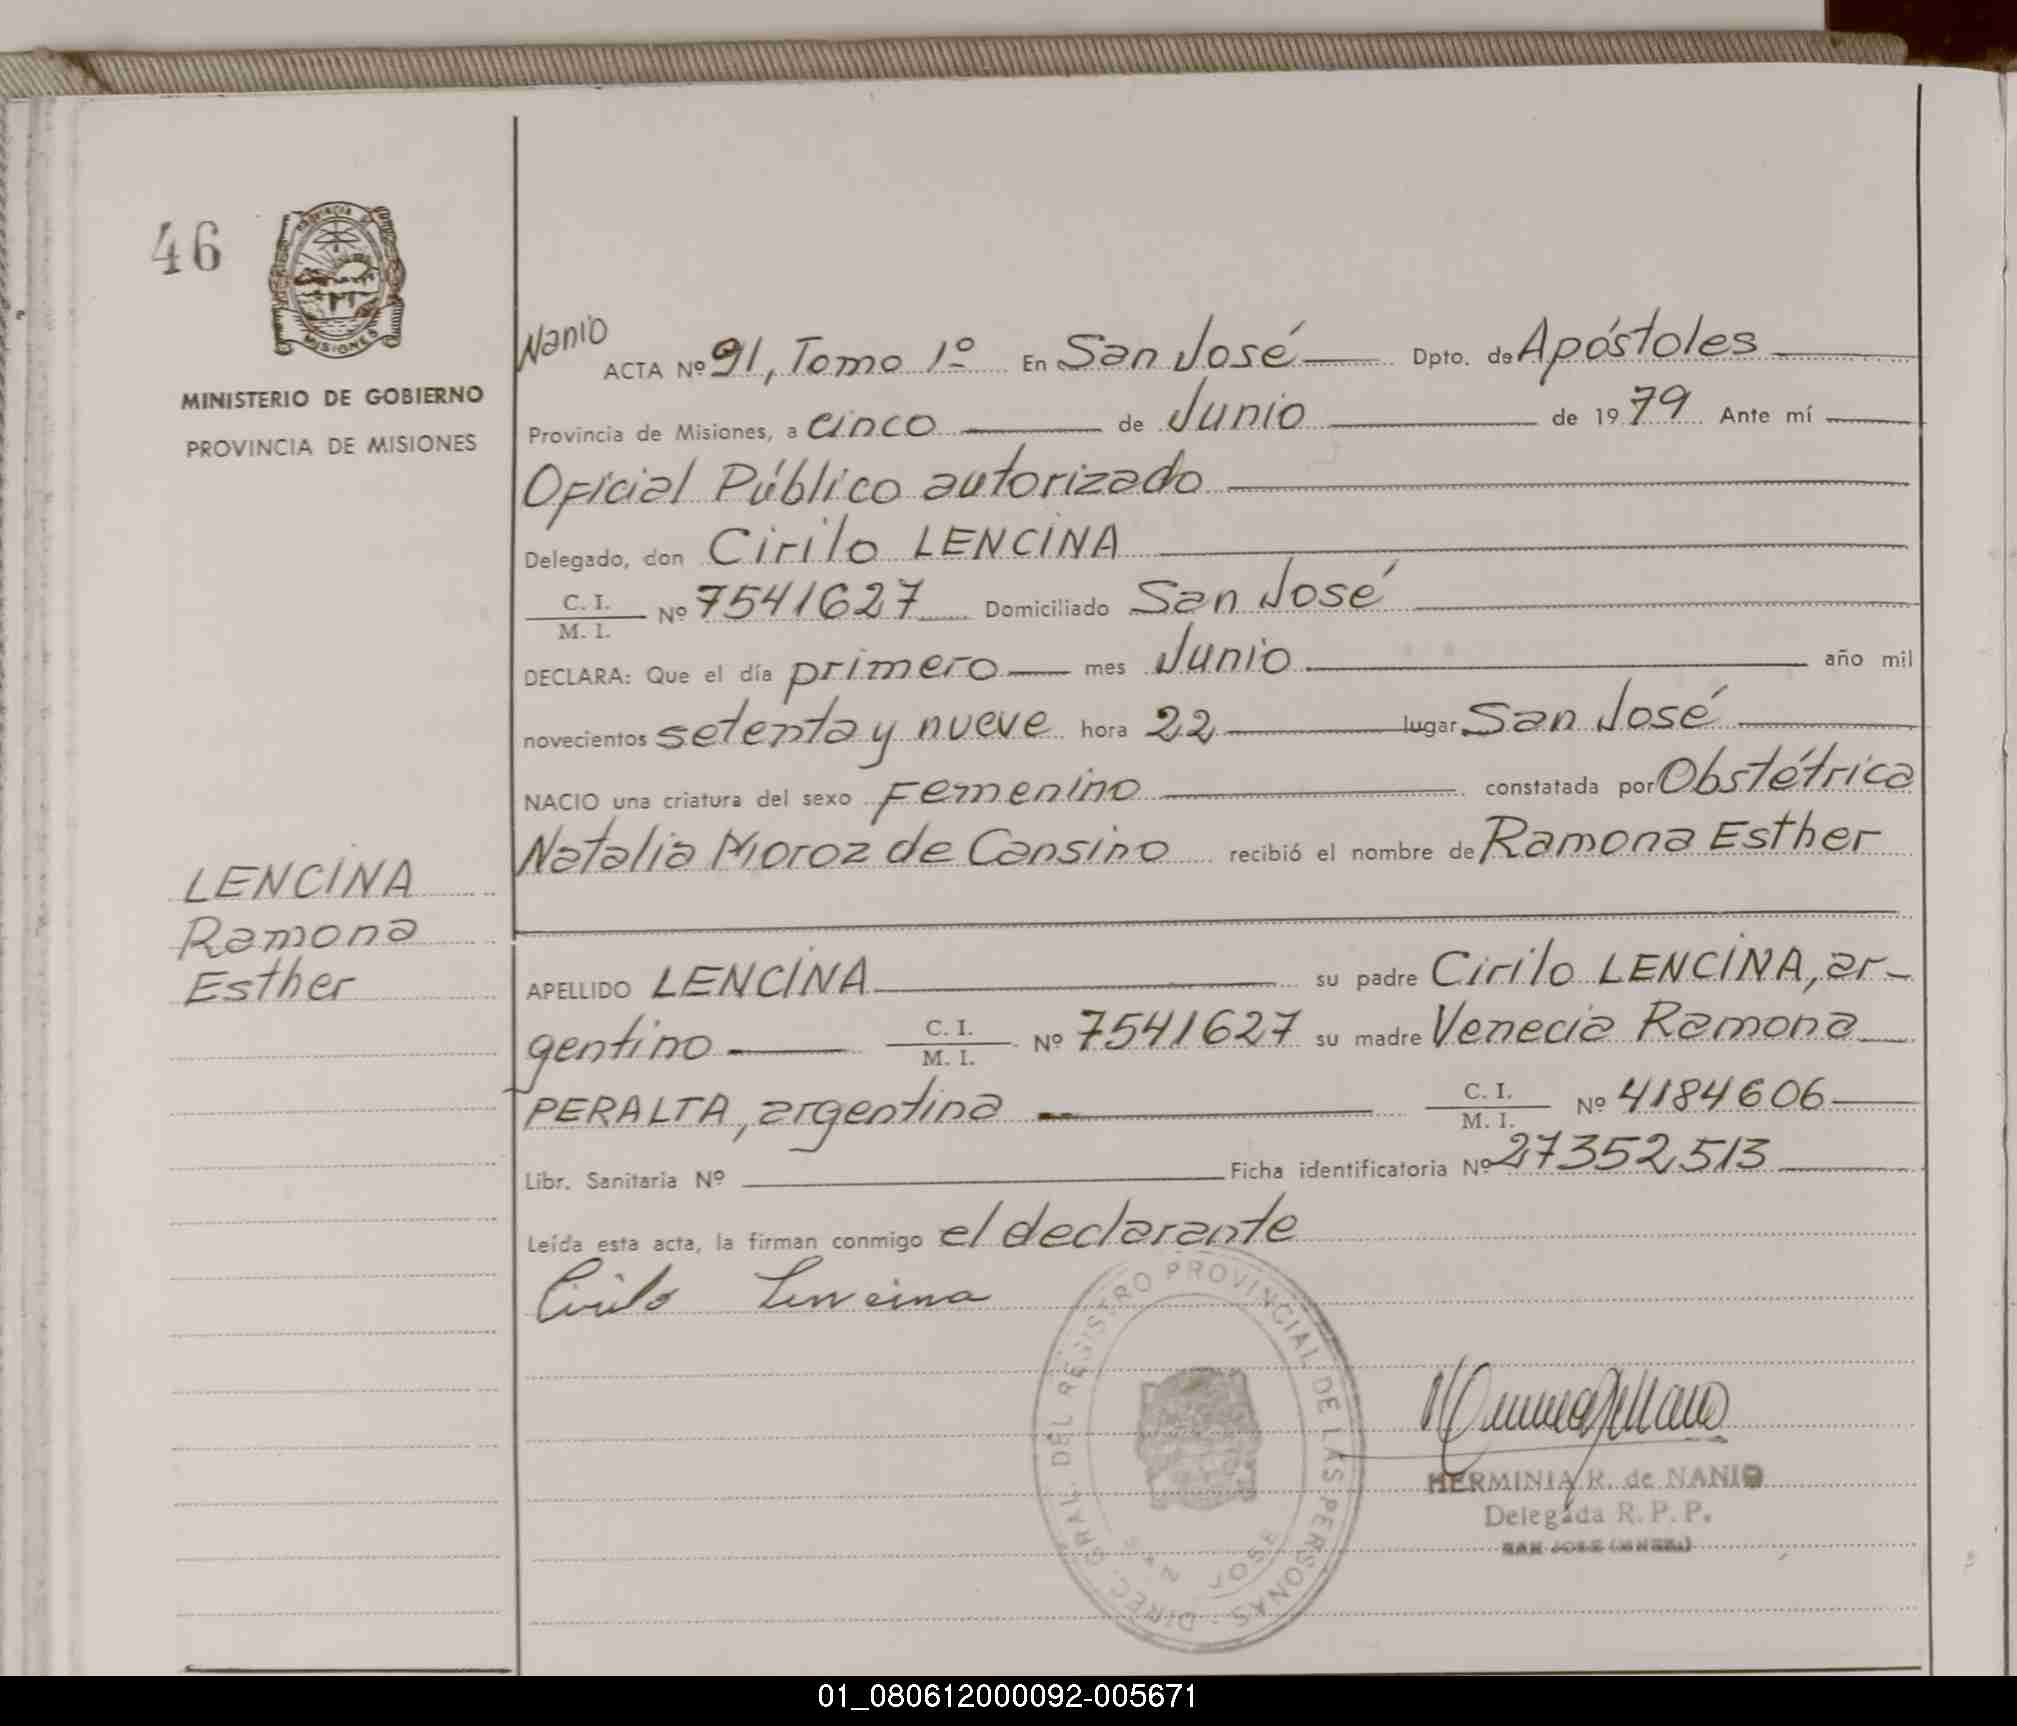 46
PROVINCIA DE
MISIONES
MINISTERIO DE GOBIERNO
PROVINCIA DE MISIONES
LENCINA
Ramona
Esther
Nanio
ACTA Nº 91, Tomo 1º En San José Dpto. de Apóstoles
Provincia de Misiones, a cinco de Junio de 1979 Ante mí
Oficial Público autorizado
Delegado, don Cirilo LENCINA
C. I.
M. I. Nº 7541627 Domiciliado San José
DECLARA: Que el día primero mes Junio año mil
novecientos setenta y nueve hora 22 lugar San José
NACIO una criatura del sexo Femenino constatada por Obstétrica
Natalia Moroz de Cansino recibió el nombre de Ramona Esther
APELLIDO LENCINA su padre Cirilo LENCINA, ar-
gentino C. I. M. I. Nº 7541627 su madre Venecia Ramona
PERALTA, argentina C. I. M. I. Nº 4184606
Libr. Sanitaria Nº Ficha identificatoria Nº 27352513
Leída esta acta, la firman conmigo el declarante
Cirilo Lencina
DIREC. GRAL. DEL REGISTRO PROVINCIAL DE LAS PERSONAS
SAN JOSE
HERMINIA R. de NANIO
Delegada R. P. P.
SAN JOSE
01_080612000092-005671